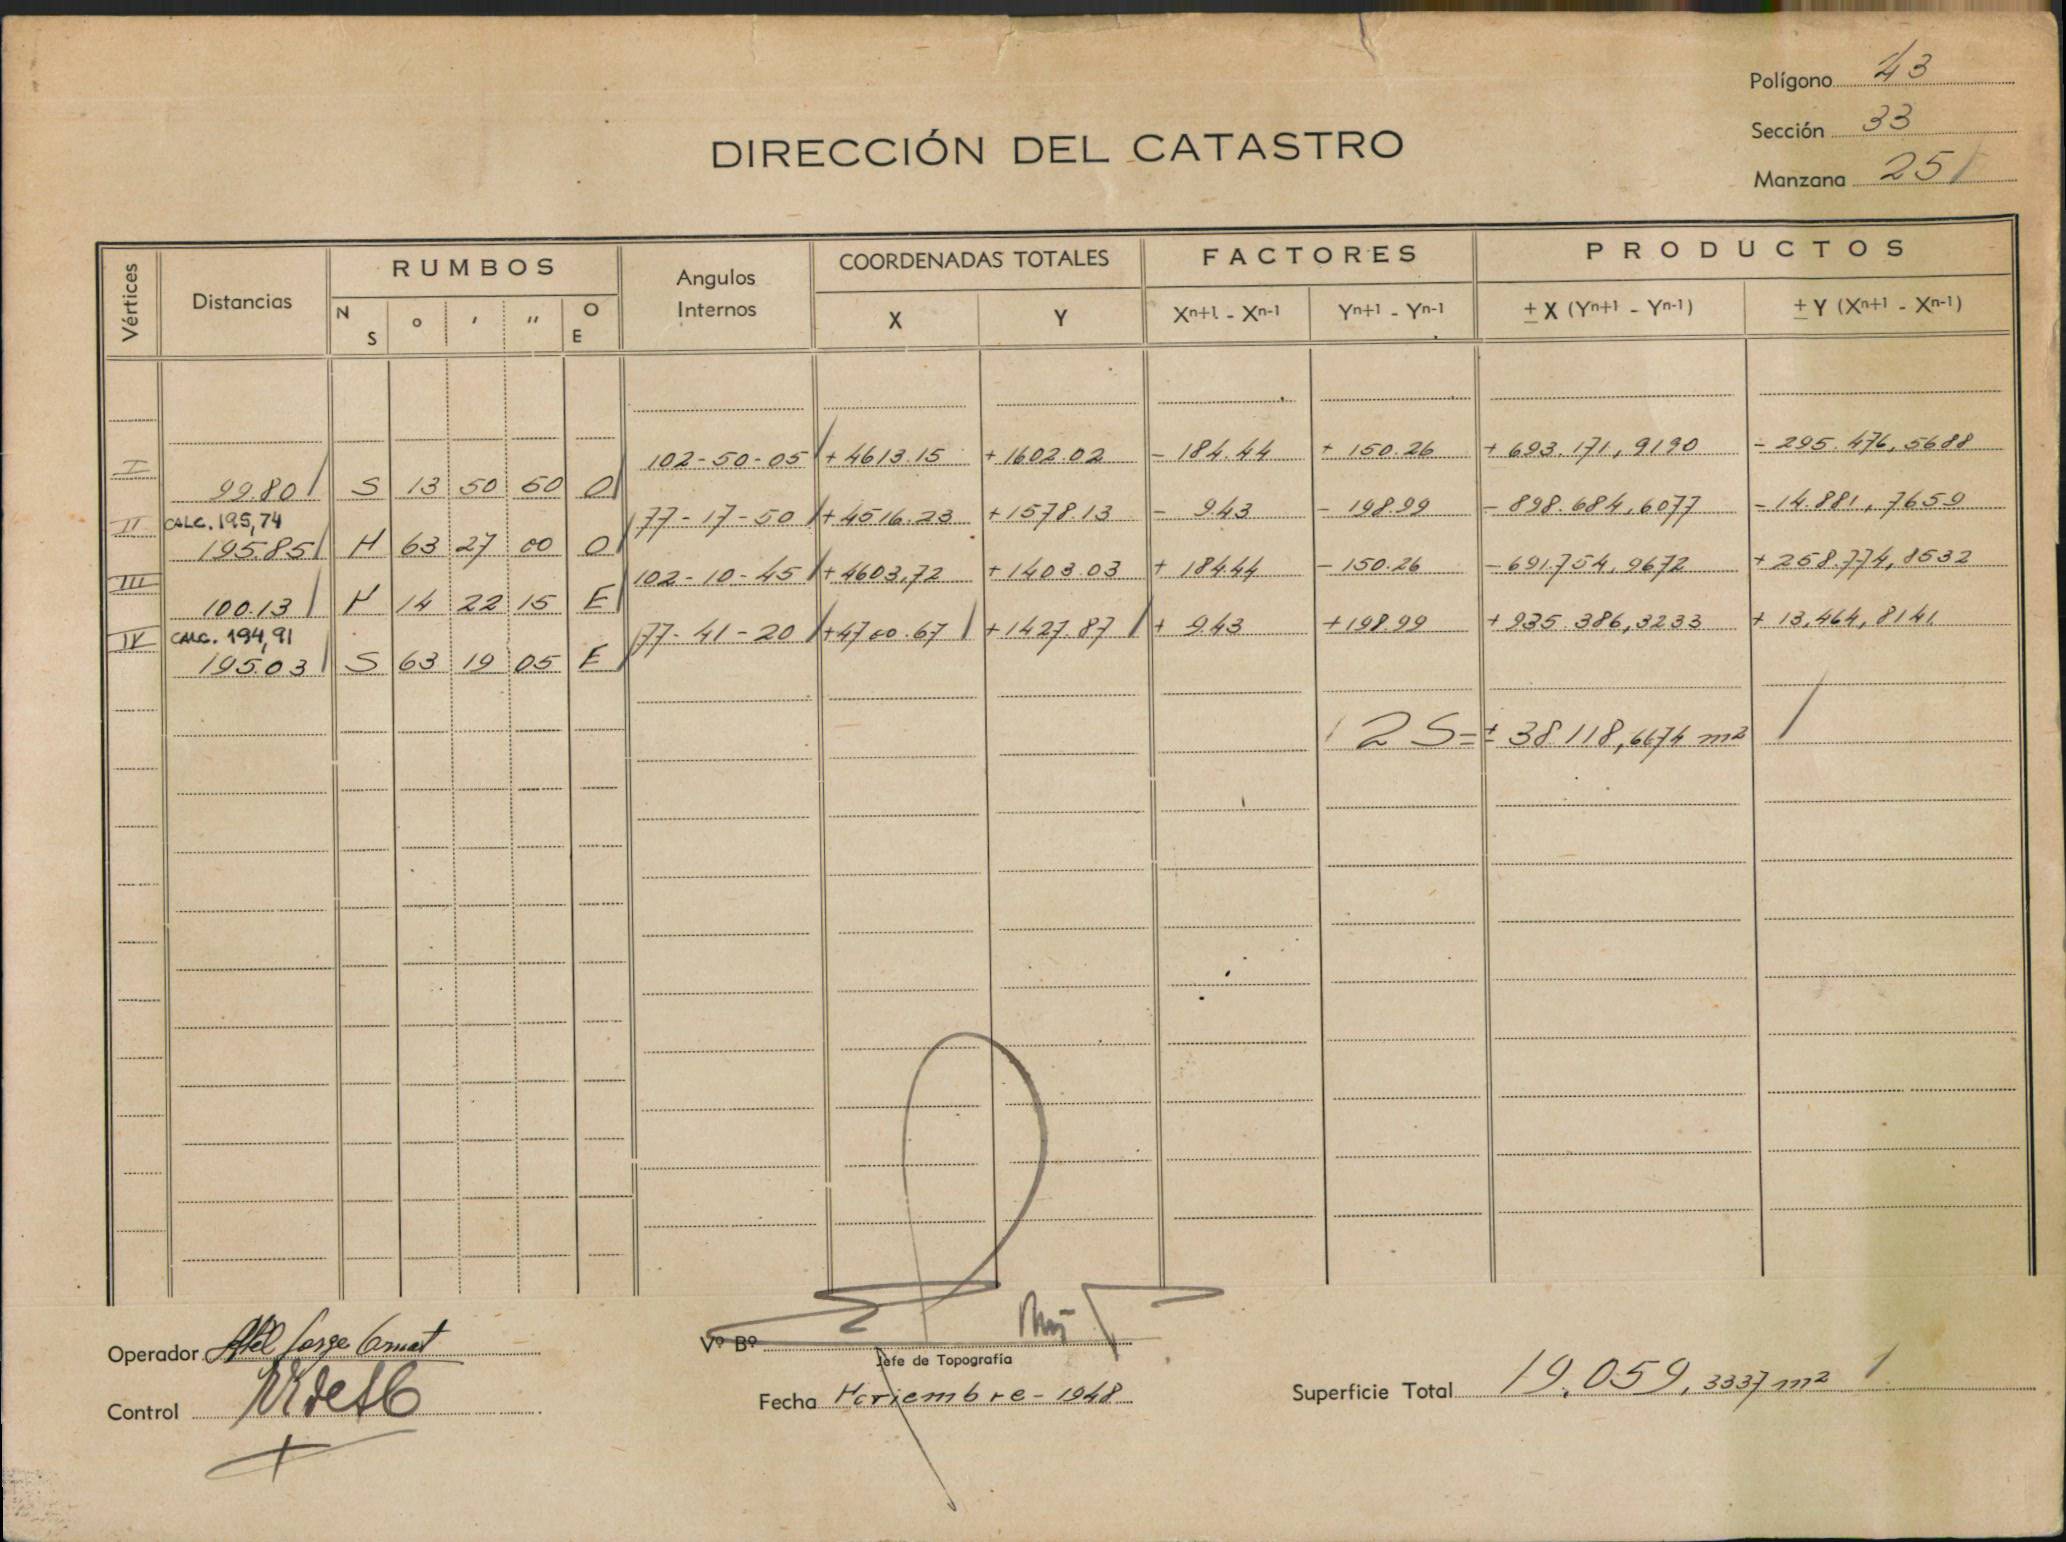 Polígono 43
Sección 33
Manzana 25
DIRECCIÓN DEL CATASTRO
Vértices Distancias RUMBOS Angulos Internos COORDENADAS TOTALES FACTORES PRODUCTOS
N S ° ' " O E X Y Xn+1 - Xn-1 Yn+1 - Yn-1 ± X (Yn+1 - Yn-1) ± Y (Xn+1 - Xn-1)
I 102-50-05 +4613.15 +1602.02 - 184.44 + 150.26 + 693.171,9190 - 295.476,5688
99.80 S 13 50 50 O
II CALC. 195,74 77-17-50 +4516.23 +1578.13 - 9.43 - 198.99 - 898.684,6077 - 14.881,7659
195.85 N 63 27 00 O
III 102-10-45 +4603,72 +1403.03 + 184.44 - 150.26 - 691.754,9672 + 258.774,8532
100.13 N 14 22 15 E
IV CALC. 194,91 77-41-20 +4700.67 +1427.87 + 9.43 +198.99 +935.386,3233 + 13,464,8141
195.03 S 63 19 05 E
2 S = ± 38 118,6674 m2
Operador
Control
Vº Bº
Jefe de Topografía
Fecha Noviembre - 1948
Superficie Total 19.059,3337 m2